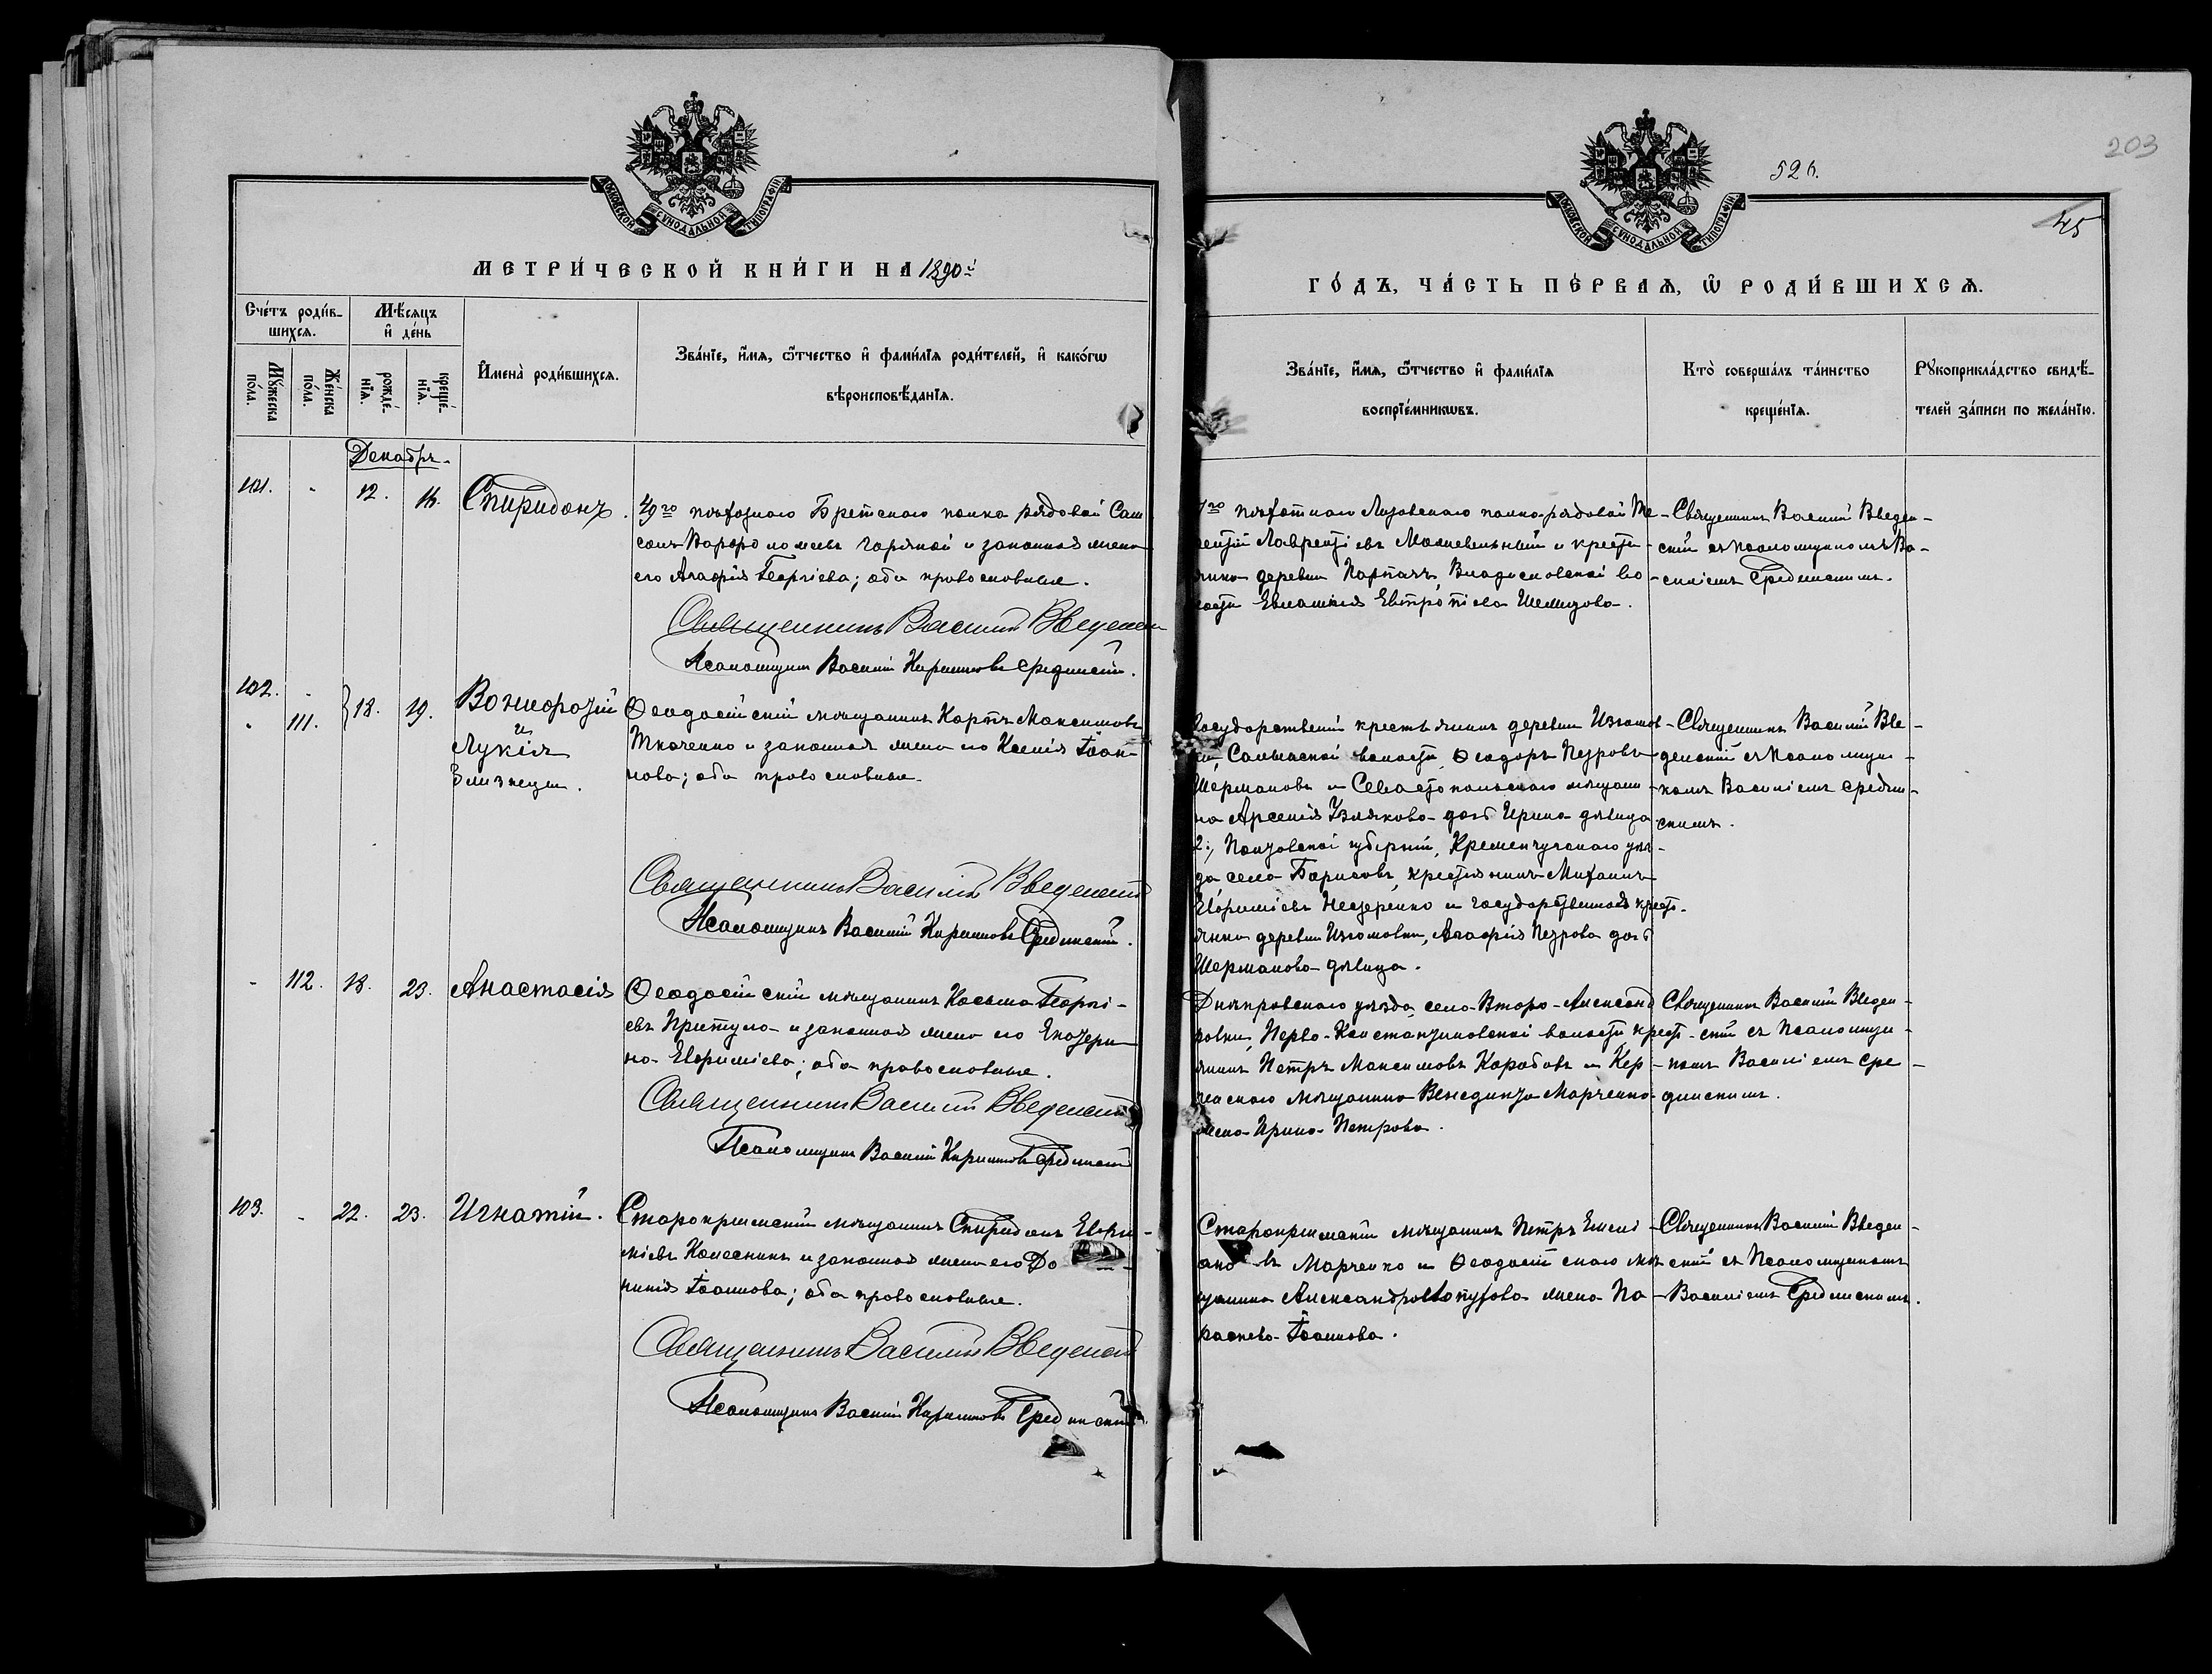 203
526.
45
МОСКОВСКОЙ СѴНОДАЛЬНОЙ ТИПОГРАФІИ
МОСКОВСКОЙ СѴНОДАЛЬНОЙ ТИПОГРАФІИ
МЕТРИ́ЧЕСКОЙ КНИ́ГИ НА 1890
ГО́ДЪ, ЧА́СТЬ ПЕ́РВАѦ, Ѡ РОДИ́ВШИХСѦ.
Сче́тъ роди́в-
шихсѧ.
Мꙋ́жеска по́ла.
Же́нска по́ла.
Мѣ́сѧцъ
и҆ де́нь
рожде́-
нїѧ.
креще́-
нїѧ.
И҆мена̀ роди́вшихсѧ.
Зва́нїе, и҆́мѧ, ѻ҆́тчество и҆ фами́лїѧ роди́телей, и҆ како́гѡ
вѣроисповѣ́данїѧ.
Зва́нїе, и҆́мѧ, ѻ҆́тчество и҆ фами́лїѧ
воспрїе́мникѡвъ.
Кто̀ соверша́лъ та́инство
креще́нїѧ.
Рꙋкоприкла́дство свидѣ́-
телей за́писи по жела́нїю.
Декабрь.
101. - 12. 16. Спиридонъ.
49го пѣхотнаго Брестскаго полка рядовой Сам
сонъ Варфоломеевъ Горяной и законная жена
его Агафія Георгіева; оба православные.
Священникъ Василій Введенскій
Псаломщикъ Василій Кириловъ Срединскій.
пѣхотнаго полка рядовой Те-
рентій Лаврентіевъ и кресть-
янка деревни Парпачъ, Владиславской во-
лости Евлампія Евтропіева
Священникъ Василій Введен-
скій съ псаломщикомъ Ва-
силіемъ Срединскимъ.
102. -
- 111.
18. 19.
Вонифатій
и
Лукія
близнецы.
Ѳеодосійскій мѣщанинъ Карпъ Максимовъ
Ткаченко и законная жена его Ксенія Іоан-
нова; оба православные.
Священникъ Василій Введенскій
Псаломщикъ Василій Кириловъ Срединскій.
Государственный крестьянинъ деревни Изюмов-
ки, Салынской волости, Ѳеодоръ Петровъ
Шермановъ и Севастопольскаго мѣщани-
на Арсенія дочь Ирина дѣвица
2., Полтавской губерніи, Кременчугскаго уѣз-
да села Борисовъ, крестьянинъ Михаилъ
Ефиміевъ Нестеренко и государственная крест-
янка деревни Изюмовки, Агафія Петрова дочь
Шерманова дѣвица.
Священникъ Василій Вве-
денскій съ псаломщи-
комъ Василіемъ Средин-
скимъ.
- 112. 18. 23. Анастасія
Ѳеодосійскій мѣщанинъ Косьма Георгі-
евъ Притула и законная жена его Екатери-
на Ефиміева; оба православные.
Священникъ Василій Введенскій
Псаломщикъ Василій Кириловъ Срединскій
Днѣпровскаго уѣзда, села Второ-Александ-
ровки, Перво-Константиновской волости крест-
янинъ Петръ Максимовъ Карабовъ и Кер-
ченскаго мѣщанина Венедикта Марченко
жена Ирина Петрова.
Священникъ Василій Введен-
скій съ Псаломщи-
комъ Василіемъ Сре-
динскимъ.
103. - 22. 23. Игнатій.
Старокрымскій мѣщанинъ Спиридонъ Ефи-
міевъ Колесникъ и законная жена его До-
никія Іоаннова; оба православные.
Священникъ Василій Введенскій
Псаломщикъ Василій Кириловъ Срединскій.
Старокрымскій мѣщанинъ Петръ
Марченко и Ѳеодосійскаго мѣ-
щанина Александра жена Па-
раскева Іоаннова.
Священникъ Василій Введен-
скій съ Псаломщикомъ
Василіемъ Срединскимъ.